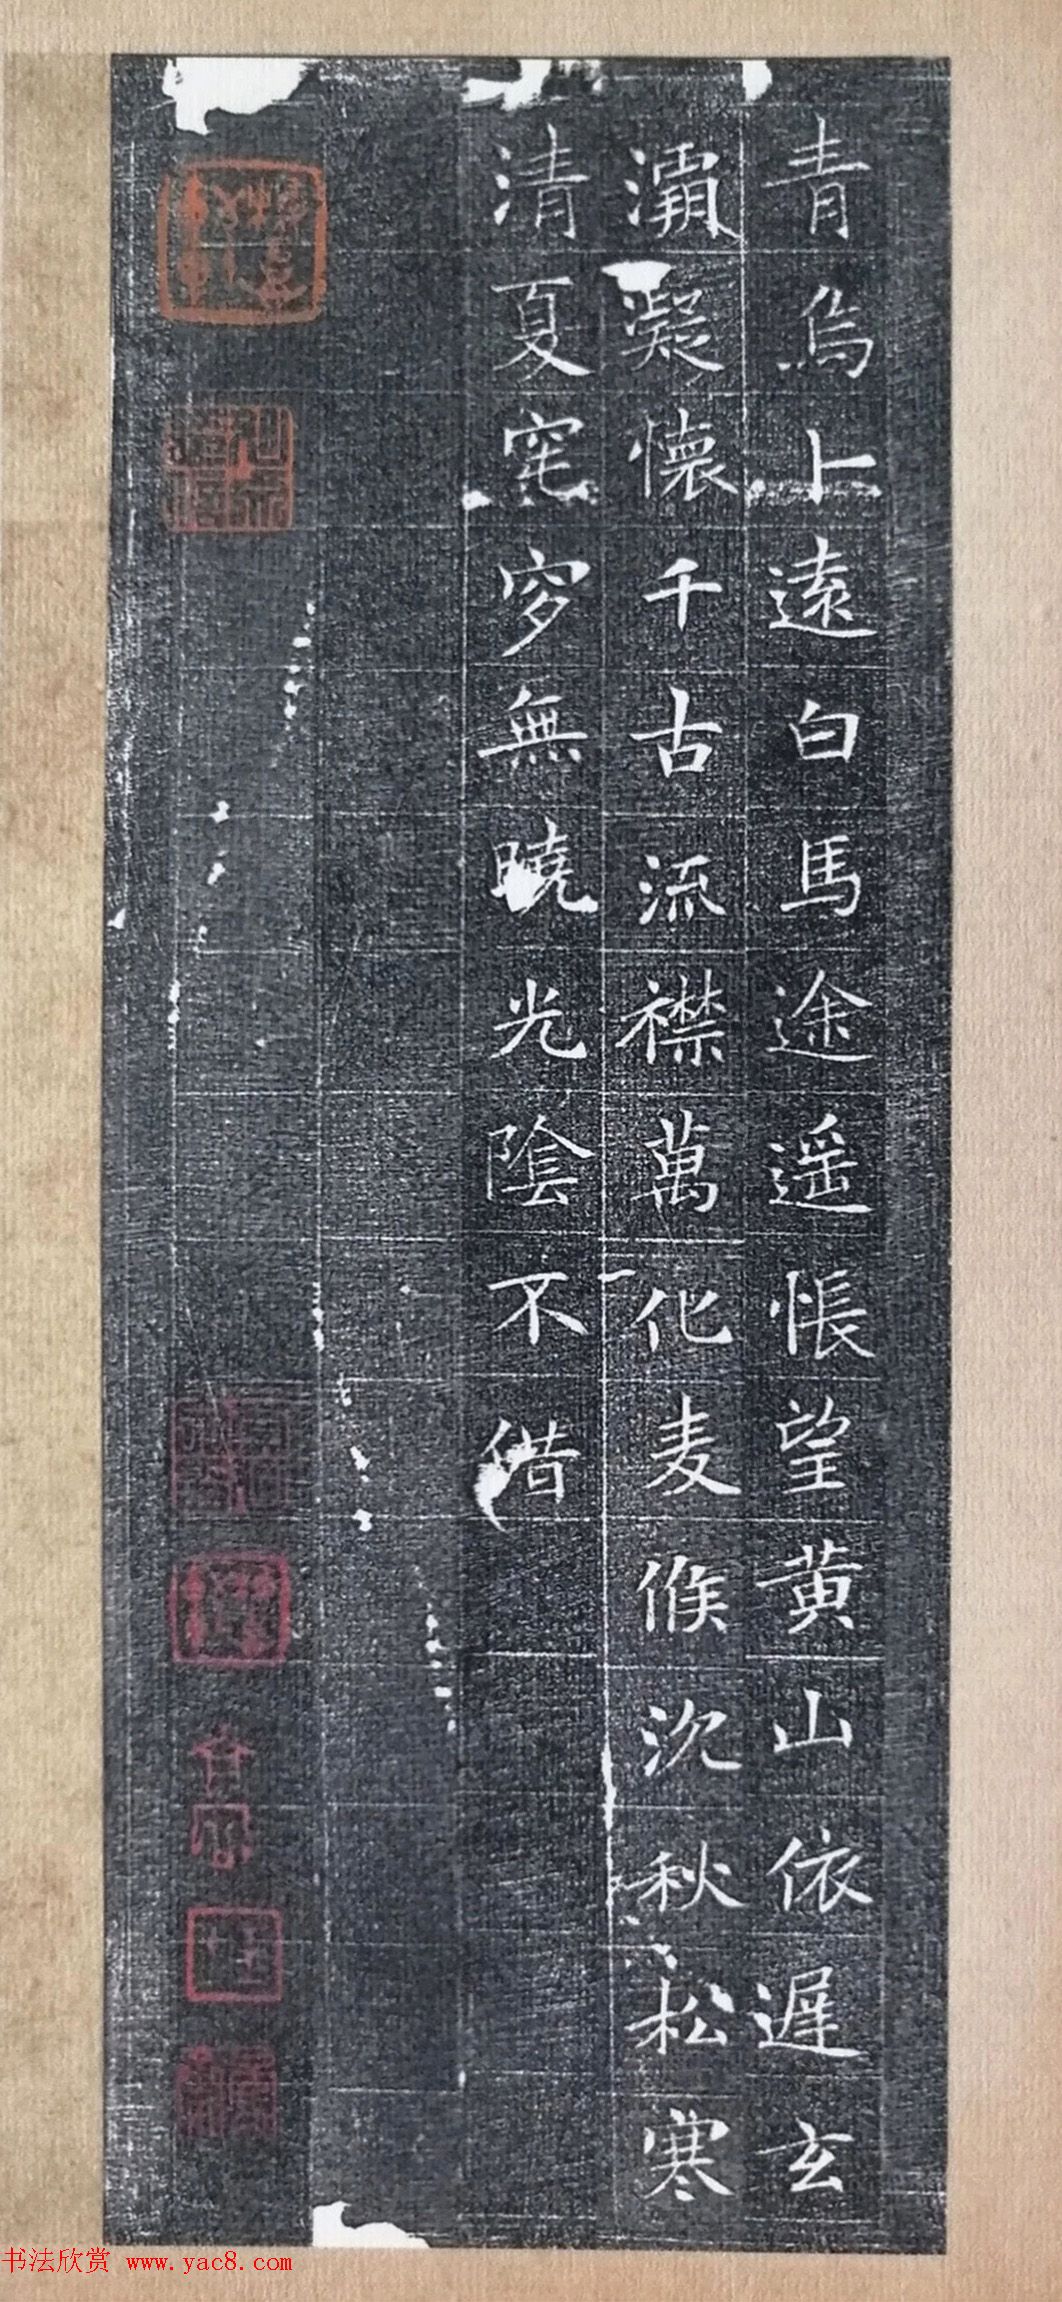 青烏卜遠白馬途遥悵望黄山依遲玄
灞凝懷千古流襟萬化麦候沉秋松寒
清夏窀穸無曉光陰不借
书法欣赏 www.yac8.com